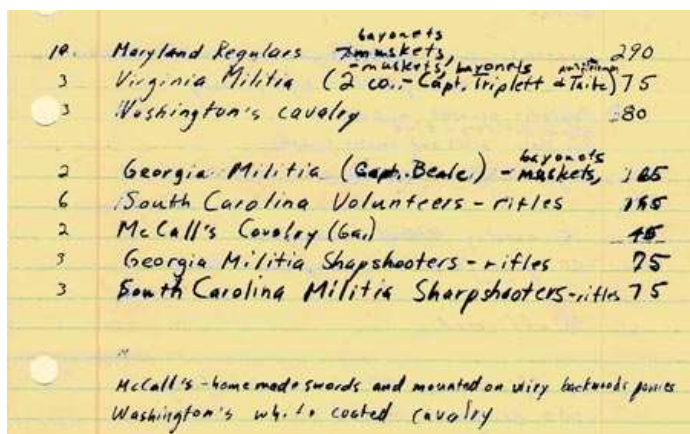 bayonets
Maryland Regulars muskets, 290
- muskets, bayonets
3 Virginia Militia (2 co. - Capt. Triplett & Taite) 75
3 Washington's cavalry 80
bayonets
2 Georgia Militia (Capt. Beale) - muskets,
6 South Carolina Volunteers - rifles
2 McCall's Cavalry (Ga.) 45
3 Georgia Militia Shapshooters - rifles 75
3 South Carolina Militia Sharpshooters - rifles 75
McCall's - homemade swords and mounted on wiry backwoods ponies
Washington's white coated cavalry